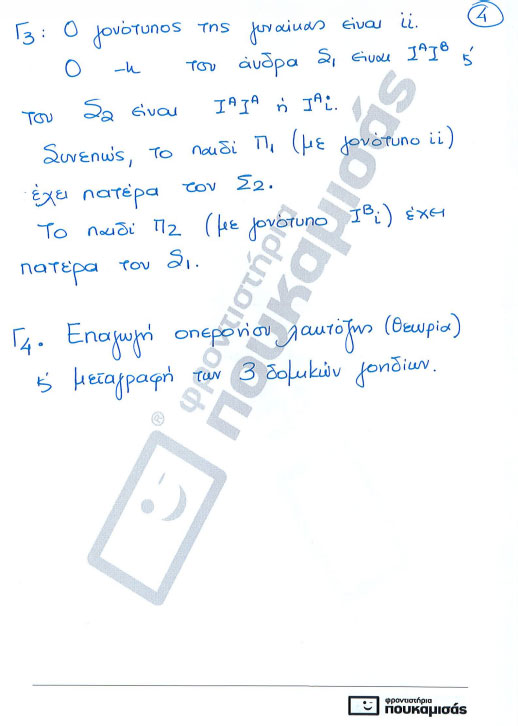 4
Γ3: Ο γονότυπος της γυναίκας είναι ii.
Ο -//- του άνδρα Σ1 είναι IᴬIᴮ ϗ
του Σ2 είναι IᴬIᴬ ή Iᴬi.
Συνεπώς, το παιδί Π1 (με γονότυπο ii)
έχει πατέρα τον Σ2.
Το παιδί Π2 (με γονότυπο Iᴮi) έχει
πατέρα τον Σ1.
Γ4. Επαγωγή οπερονίου λακτόζης (θεωρία)
ϗ μεταγραφή των 3 δομικών γονιδίων.
φροντιστήρια
πουκαμισάς
®
φροντιστήρια
πουκαμισάς